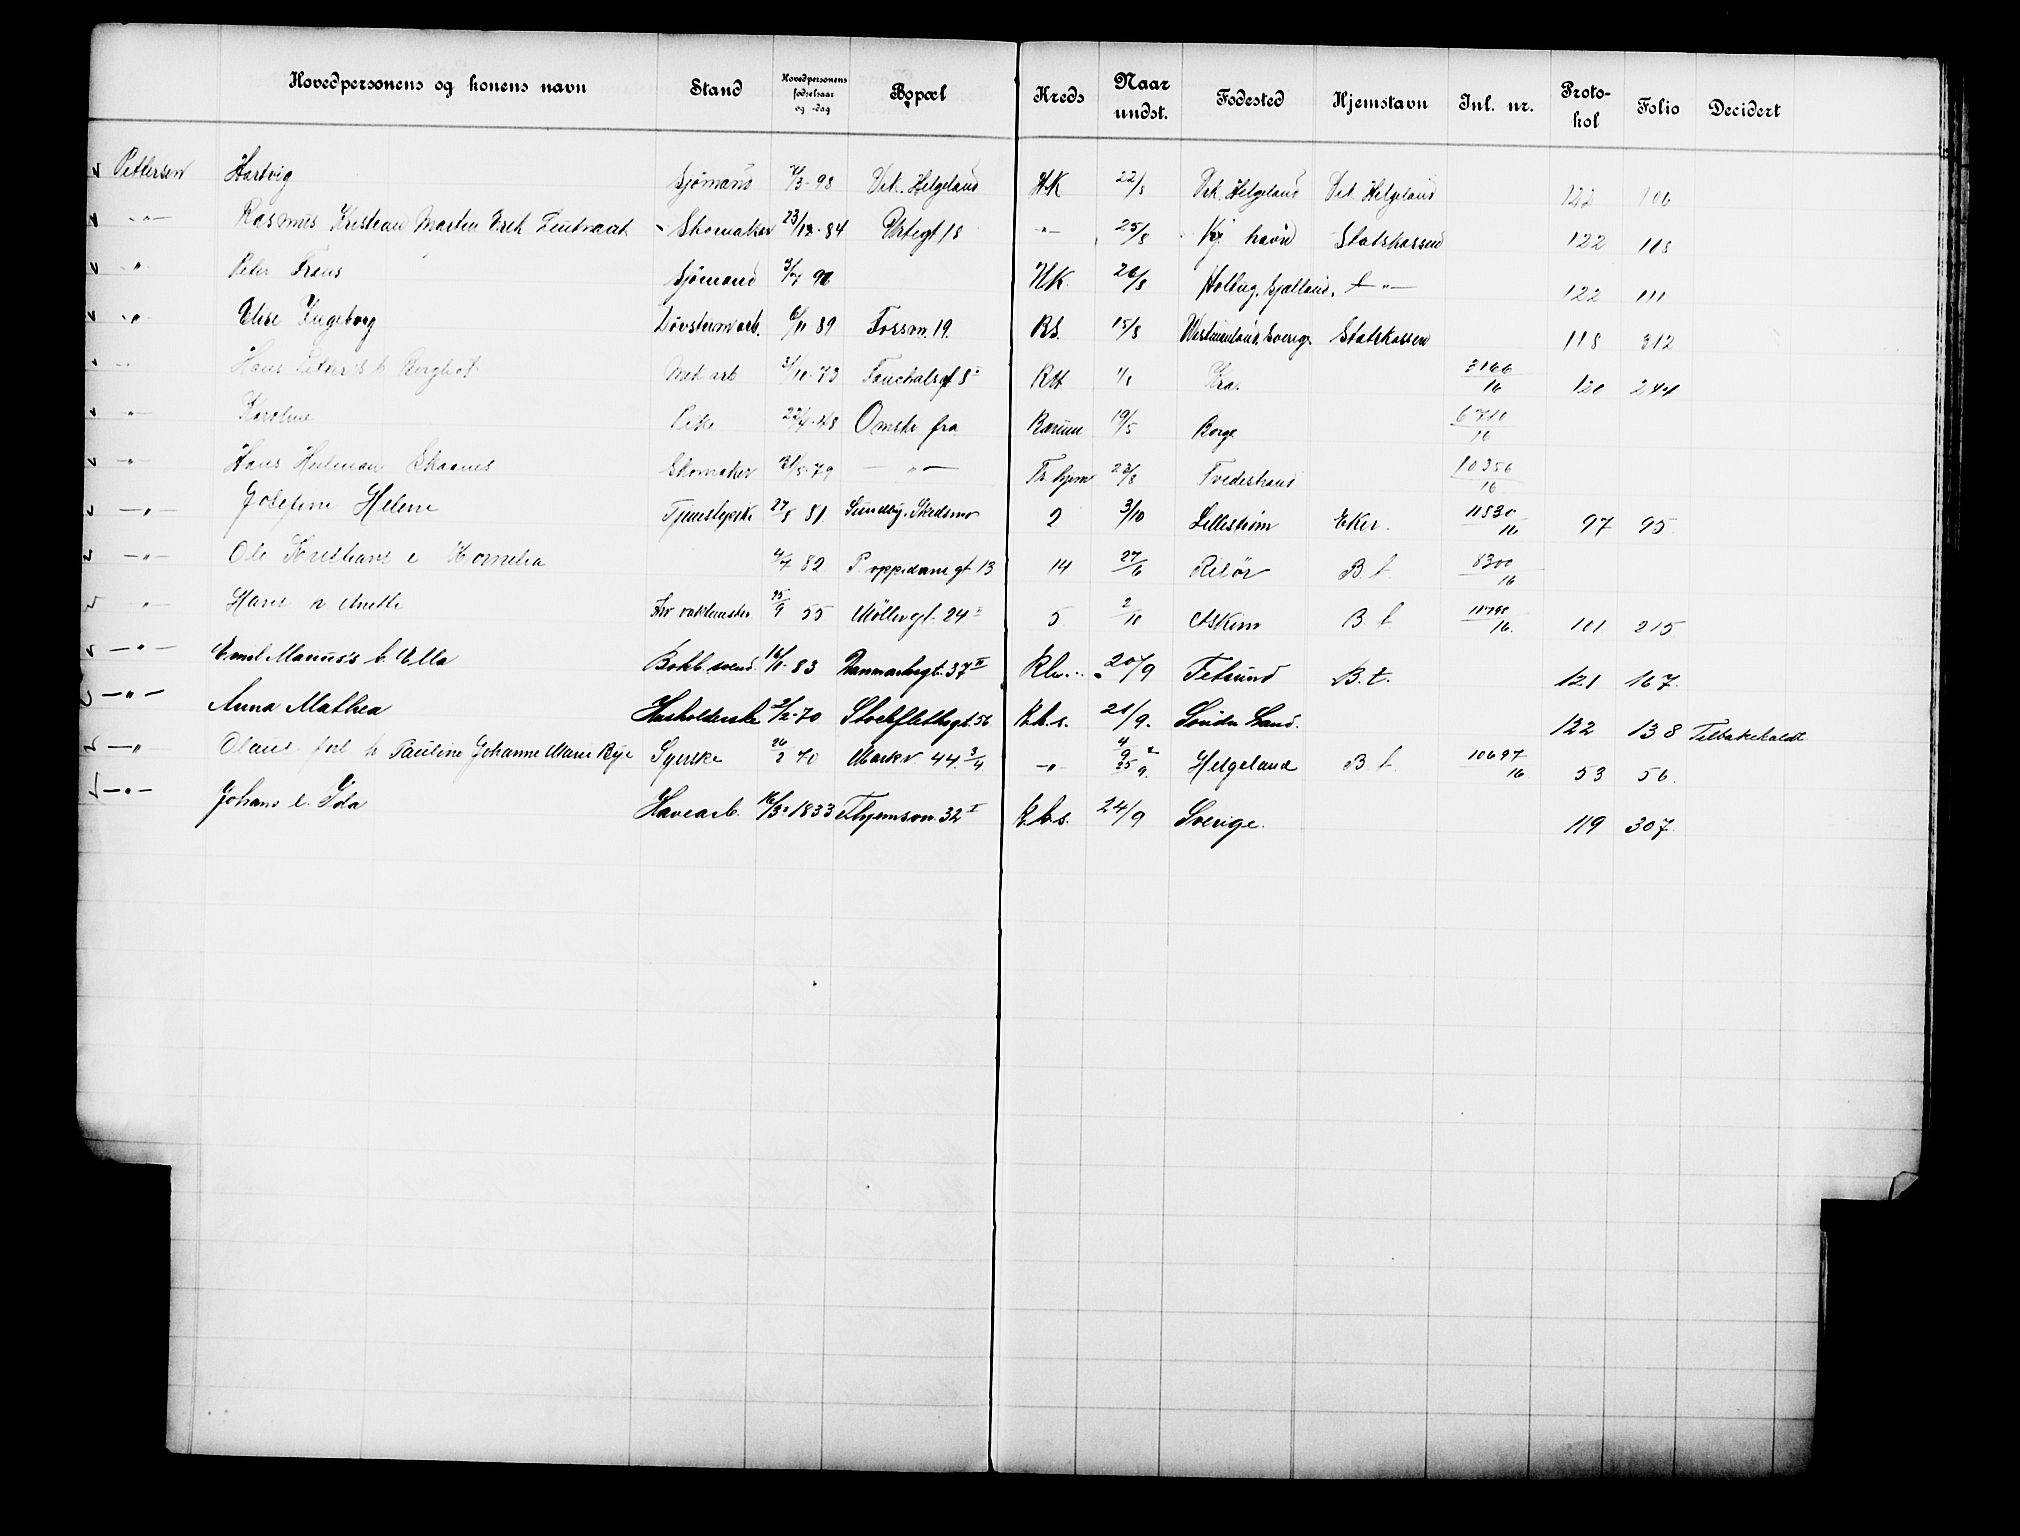 Hovedpersonens og konens navn Stand Hovedpersonens fødselsaar og -dag Bopæl Kreds Naar undst. Fødested Hjemstavn Inl. nr. Protokol Folio Decidert
Pettersen Hartvig Sjømand /3-98 Vik. Helgeland H.K 22/8 Vik. Helgeland Vik. Helgeland 122 106
-"- Rasmus Kristian Martin Skomaker 23/12-84 Urtegt 18 -"- 25/8 Kj havn Statskassen 122 118
" Peter Frans Sjømand 90 H.K. 26/8 Sjælland. -"- 122 111
" Elise Ingeborg 6/11 89 Fossvn. 19. R.S. 15/8 Sverige Statskassen 118 312
" Hans Met arb 3/10-73 Fouchalsgt 8 1/8 Kra. 3166/16 120 244
-"- Karoline Pike 22/4-48 Ønske fra Bærum 19/5 Borge 6710/16
-"- Hans Herman Skaanes Skomaker 31/5-79 -"- Tr. hjem 23/8 Tvedestrand 10356/16
-"- Josefine Helene Tjenestepike 27/8 81 Sundby, Skedsmo 2 3/10 Lillestrøm Eker. 11830/16 97 95
-"- Ole Kristians e Kornelia 4/7 82 P. oppedamgt 13 14 27/6 Risør B. t. 8300/16
" Hans n Anette Fhv vaktmester 25/9 55 Møllergt. 24 5 2/10 Askim B t. 16. 101 215
-"- Emil Marius's b. Ella Bokb. svend 16/11-83 Danmarksgt. 37 II 20/9 Fetsund B. t. 121 167.
-"- Anna Mathea Husholderske 2/2-70 Stockflethsgt. 56 R.h.s. 21/9. Søndre Land. 122 138 Tilbakekaldt
-"- Olaus' frl h Pauline Johanne Marie Bye Syerske 26/2 70 Markv 44. 3/4 -"- 4/9 25/9. Helgeland B t. 10697/16 53 56.
-"- Johans e. Ida Havearb. 16/3-1833 Thjemsvn. 32 I R.h.s. 24/9 Sverige. 119 307.